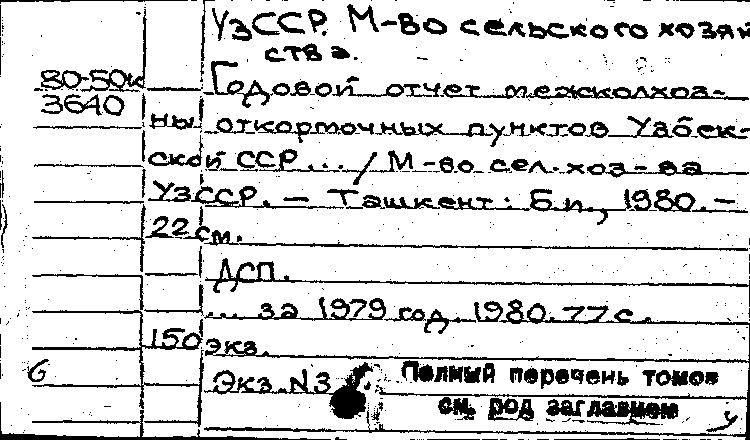 УзССР. М-во сельского хозяй
ства.
80-50к Годовой отчет межколхоз-
3640
ны откормочных пунктов Узбек-
ской ССР... / М-во сел. хоз-ва
УзССР. — Ташкент: Б.и., 1980. —
22 см.
ДСП.
... за 1979 год. 1980. 77 с.
150 экз.
6
Экз. N3
Полный перечень томов
см. под заглавием